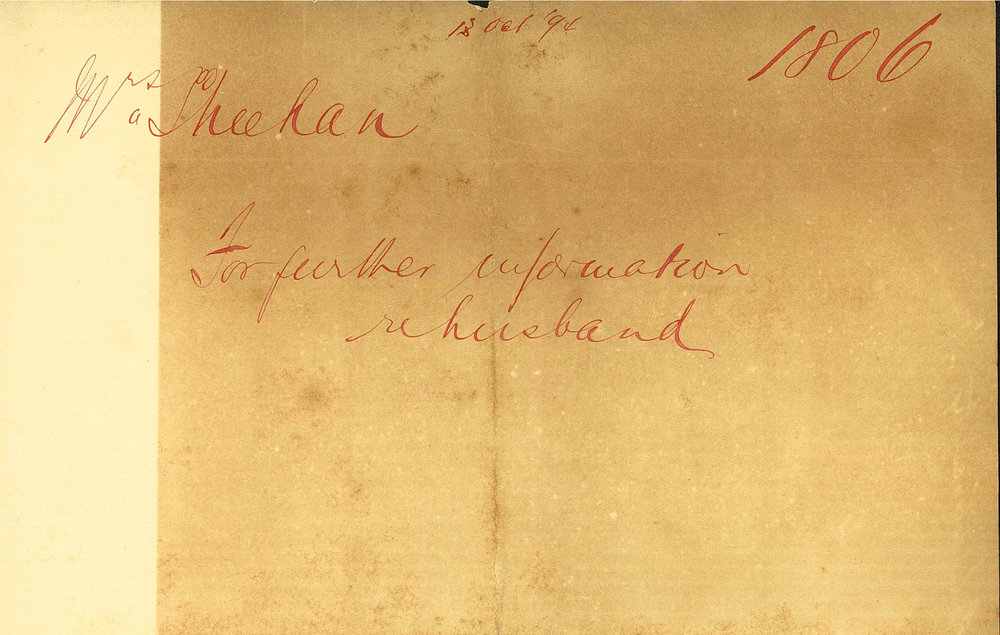 13 Oct '94
1806
Mrs a Sheehan
For further information
re husband